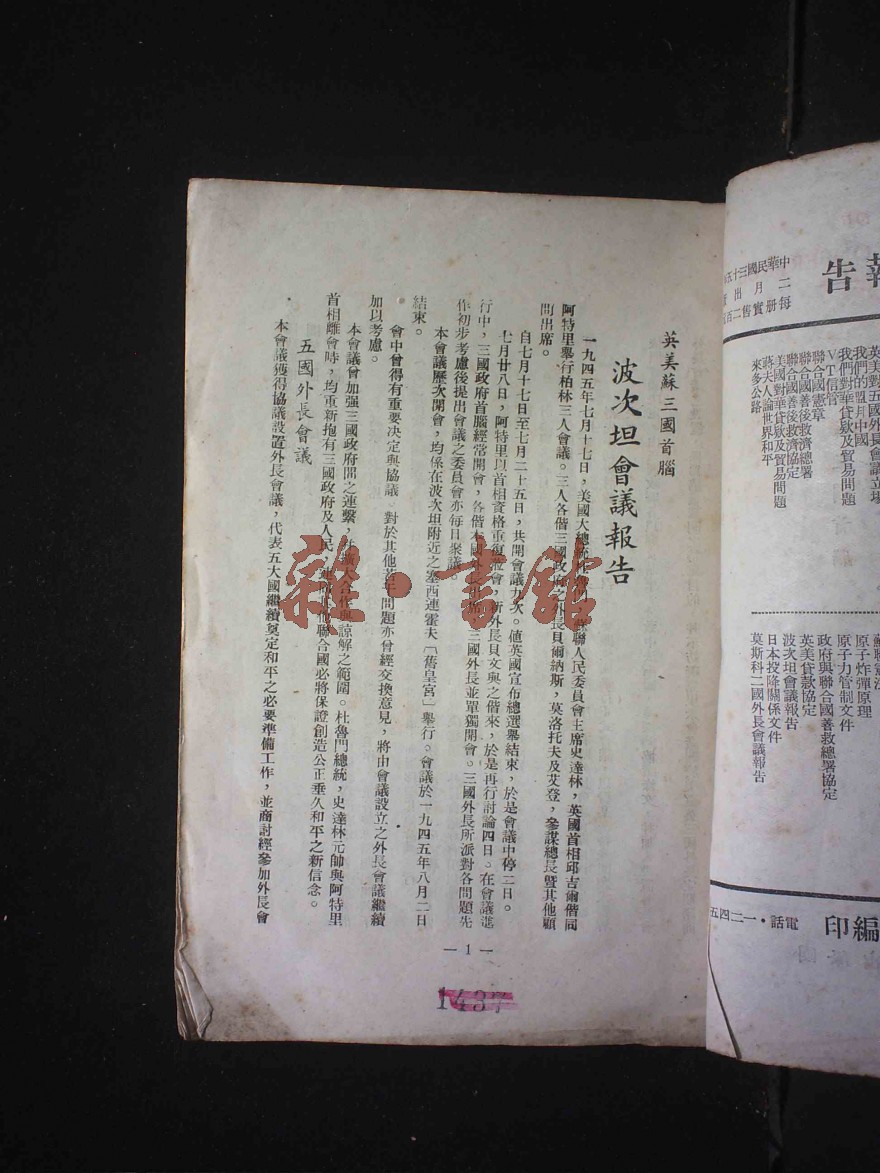 英美蘇三國首腦
波次坦會議報告
一九四五年七月十七日，美國大總統杜魯門，蘇聯人民委員會主席史達林，英國首相邱吉爾偕同
阿特里舉行柏林三人會議。三人各偕三國政府之外長貝爾納斯，莫洛托夫及艾登，參謀總長暨其他顧
問出席。
自七月十七日至七月二十五日，共開會議九次。値英國宣布總選舉結束，於是會議中停二日。
七月廿八日，阿特里以首相資格重復蒞會，新外長貝文與之偕來，於是再行討論四日。在會議進
行中，三國政府首腦經常開會，各偕本國外長出席，三國外長並單獨開會。三國外長所派對各問題先
作初步考慮後提出會議之委員會亦每日衆議。
本會議歷次開會，均係在波次坦附近之塞西連霍夫「舊皇宮」舉行。會議於一九四五年八月二日
結束。
會中曾得有重要決定與協議，對於其他若干問題亦曾經交換意見，將由會議設立之外長會議繼續
加以考慮。
本會議曾加强三國政府間之連繫，并擴大合作與諒解之範圍。杜魯門總統，史達林元帥與阿特里
首相離會時，均重新抱有三國政府及人民，連同其他聯合國必將保證創造公正垂久和平之新信念。
五國外長會議
本會議獲得協議設置外長會議，代表五大國繼續奠定和平之必要準備工作，並商討經參加外長會
— 1 —
1437
雜·書館
報告
中華民國三十五
二月出
每册實售二百
英美對五國外長會議立場
我們的盟邦中國
我們對華貸欵及貿易問題
VT信管
聯合國憲章
聯合國善後救濟總署
聯合國善後救濟協定
美國對華貸欵及貿易問題
蔣夫人論世界和平
來多公路
蘇聯憲法
原子炸彈原理
原子力管制文件
政府與聯合國善救總署協定
英美貸款協定
波次坦會議報告
日本投降關係文件
莫斯科三國外長會議報告
編印
電話·一二四五